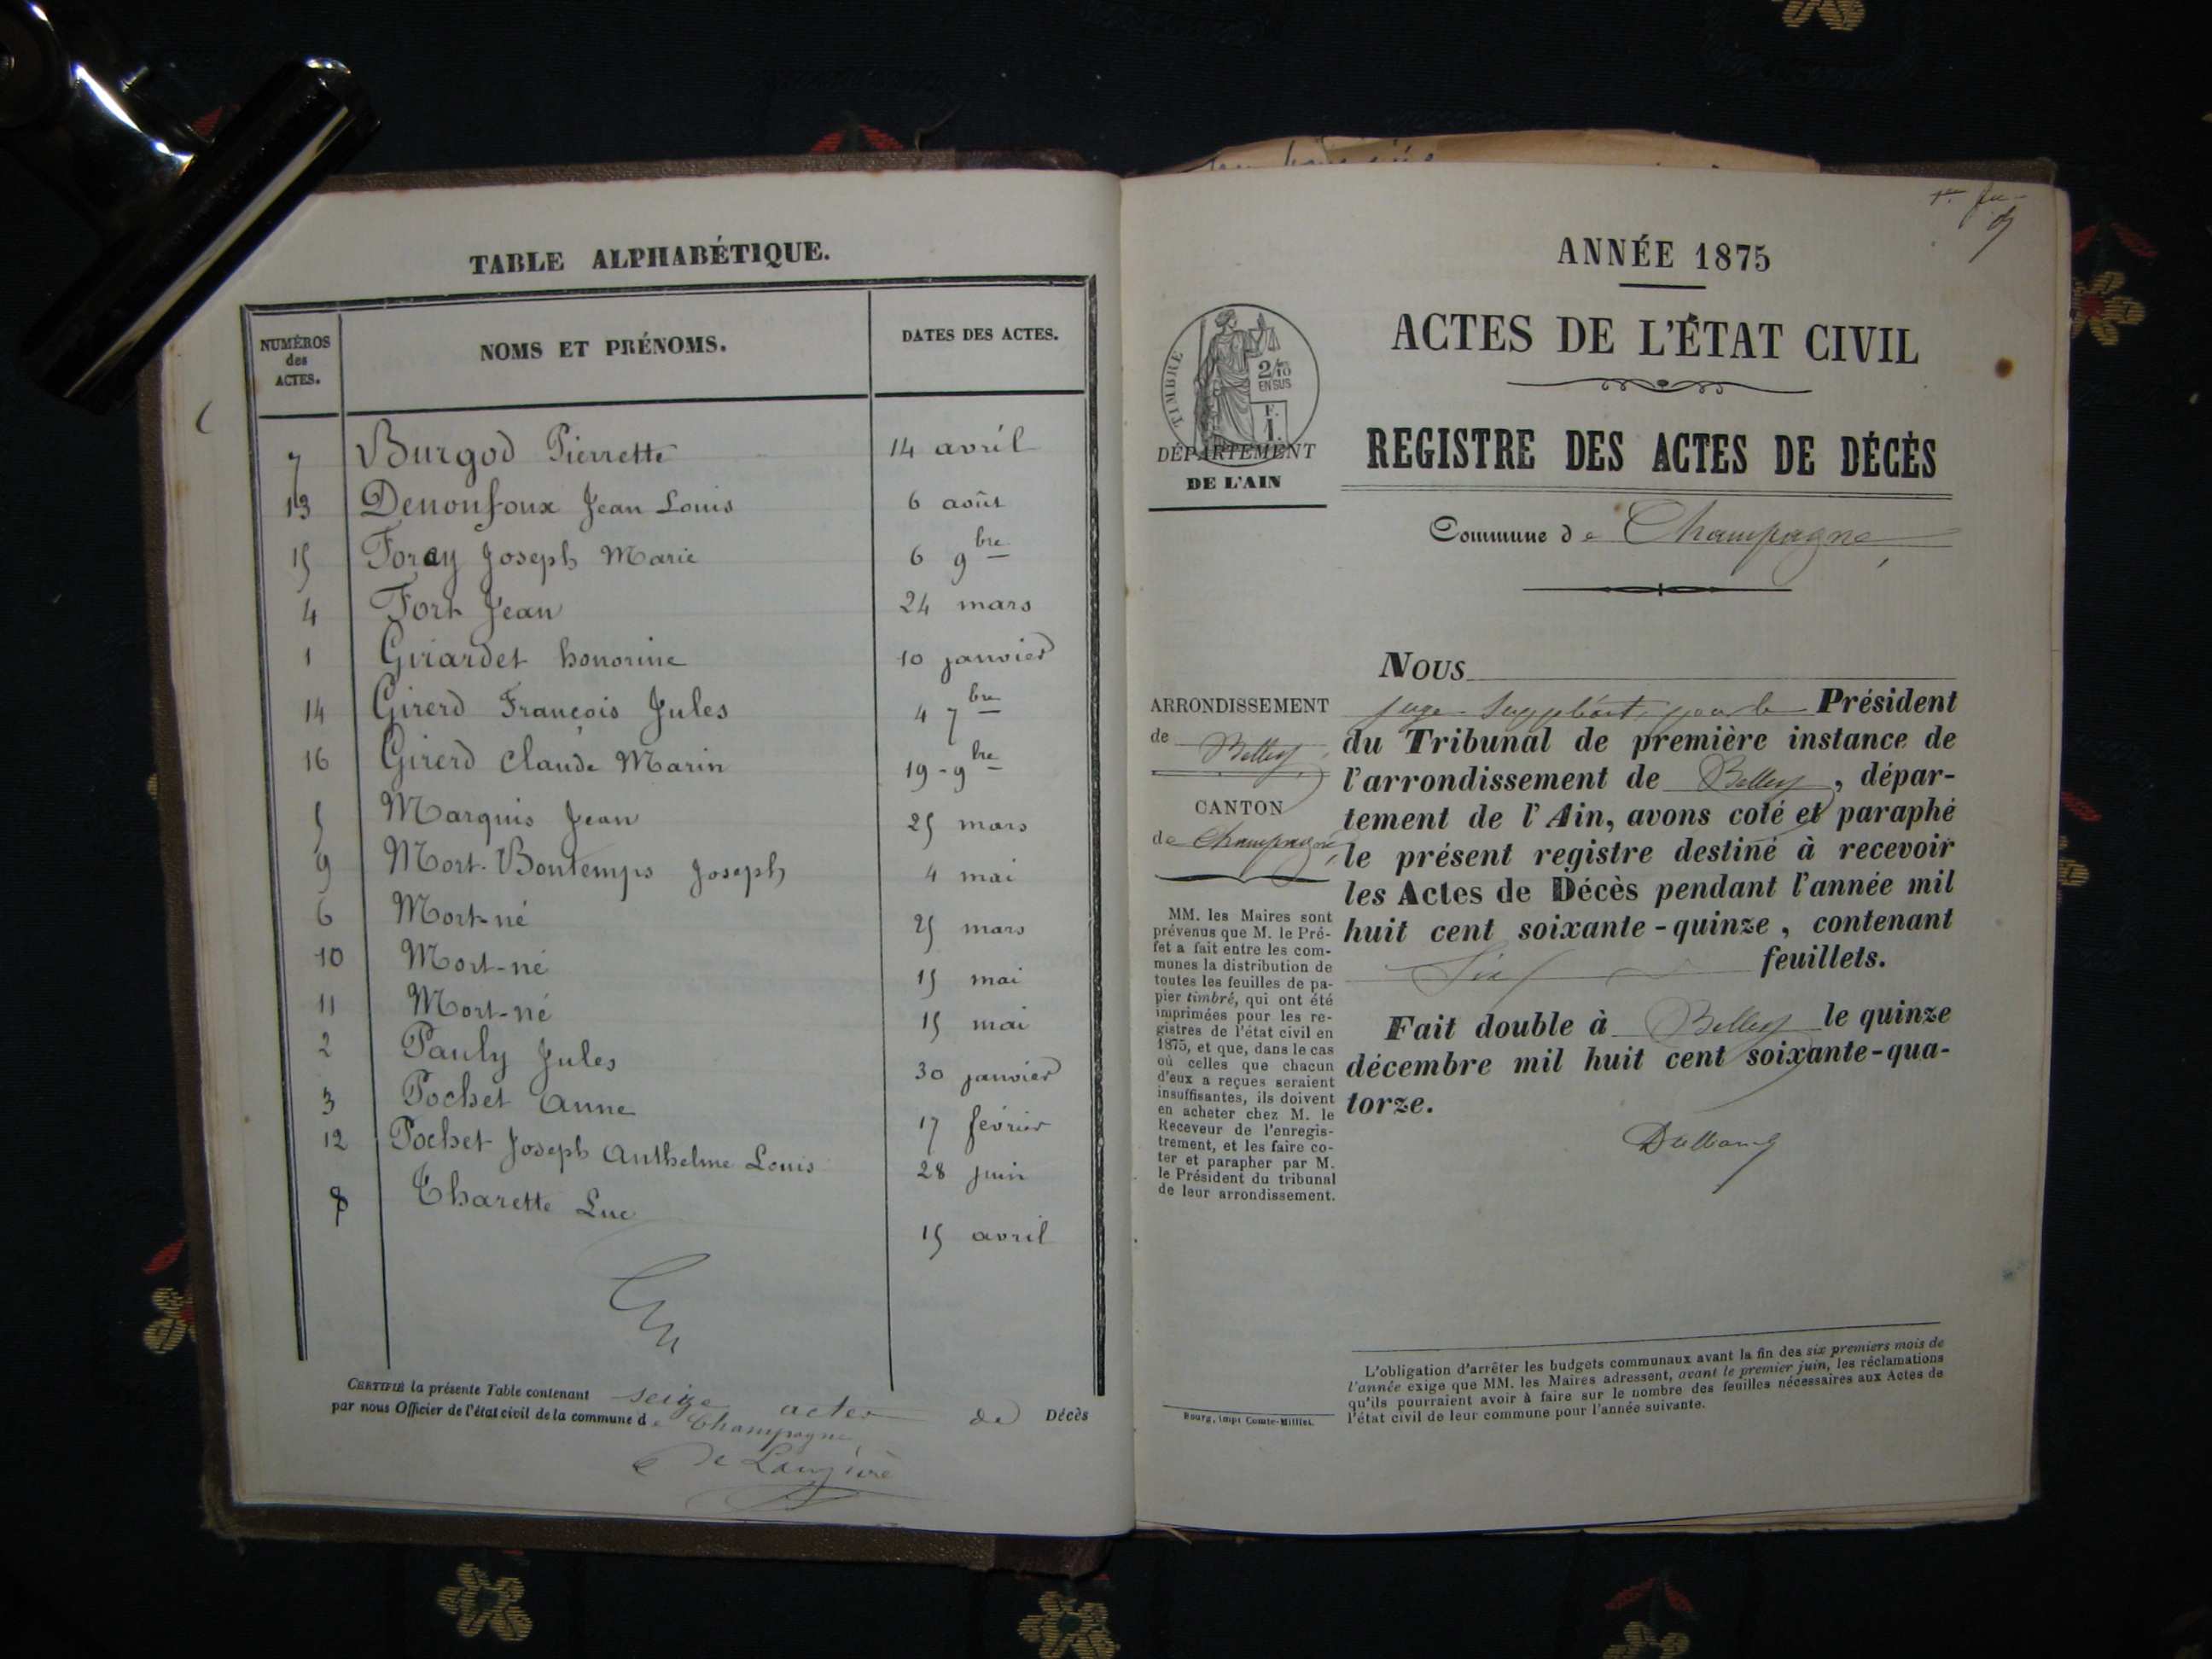 TABLE ALPHABÉTIQUE.
NUMÉROS
des
ACTES.
NOMS ET PRÉNOMS.
DATES DES ACTES.
7 Burgod Pierrette 14 avril
13 Denonfoux Jean Louis 6 août
15 Foray Joseph Marie 6 9bre
4 Fort Jean 24 mars
1 Girardet honorine 10 janvier
14 Girerd François Jules 4 7bre
16 Girerd Claude Marin 19 - 9bre
5 Marquis Jean 25 mars
9 Mort-Bontemps Joseph 4 mai
6 Mort-né 25 mars
10 Mort-né 15 mai
11 Mort-né 15 mai
2 Pauly Jules 30 janvier
3 Pochet Anne 17 février
12 Pochet Joseph Anthelme Louis 28 juin
8 Charette Luc 15 avril
CERTIFIÉ la présente Table contenant seize actes de Décès
par nous Officier de l'état civil de la commune de Champagne
1er
ANNÉE 1875
ACTES DE L'ÉTAT CIVIL
TIMBRE
2/10
EN SUS
F.
1
DÉPARTEMENT
DE L'AIN
REGISTRE DES ACTES DE DÉCÈS
Commune de Champagne
ARRONDISSEMENT
de Belley
CANTON
de Champagne
MM. les Maires sont
prévenus que M. le Pré-
fet a fait entre les com-
munes la distribution de
toutes les feuilles de pa-
pier timbré, qui ont été
imprimées pour les re-
gistres de l'état civil en
1875, et que, dans le cas
où celles que chacun
d'eux a reçues seraient
insuffisantes, ils doivent
en acheter chez M. le
Receveur de l'enregis-
trement, et les faire co-
ter et parapher par M.
le Président du tribunal
de leur arrondissement.
NOUS
juge suppléant, pour le Président
du Tribunal de première instance de
l'arrondissement de Belley, dépar-
tement de l'Ain, avons coté et paraphé
le présent registre destiné à recevoir
les Actes de Décès pendant l'année mil
huit cent soixante-quinze, contenant
Six feuillets.
Fait double à Belley le quinze
décembre mil huit cent soixante-qua-
torze.
L'obligation d'arrêter les budgets communaux avant la fin des six premiers mois de
l'année exige que MM. les Maires adressent, avant le premier juin, les réclamations
qu'ils pourraient avoir à faire sur le nombre des feuilles nécessaires aux Actes de
l'état civil de leur commune pour l'année suivante.
Bourg, impr Comte-Milliet.